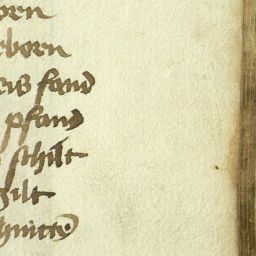 orn
eborn
eis fand
pfand
schilt
gilt
hnitte